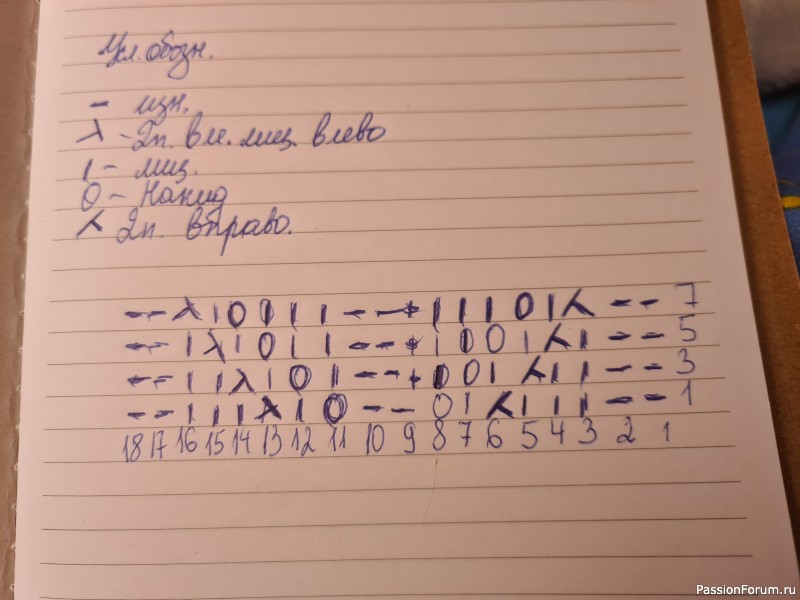 Усл. обозн.
- изн.
λ - 2п. вм. лиц. влево
| - лиц.
O - Накид
⅄ 2п. вправо.
- - λ | O | | | - - - | | | O | ⅄ - - 7
- - | λ | O | | - - | O O | ⅄ | - - 5
- - | | λ | O | - - O O | ⅄ | | - - 3
- - | | | λ | O - - O | ⅄ | | | - - 1
18 17 16 15 14 13 12 11 10 9 8 7 6 5 4 3 2 1
PassionForum.ru